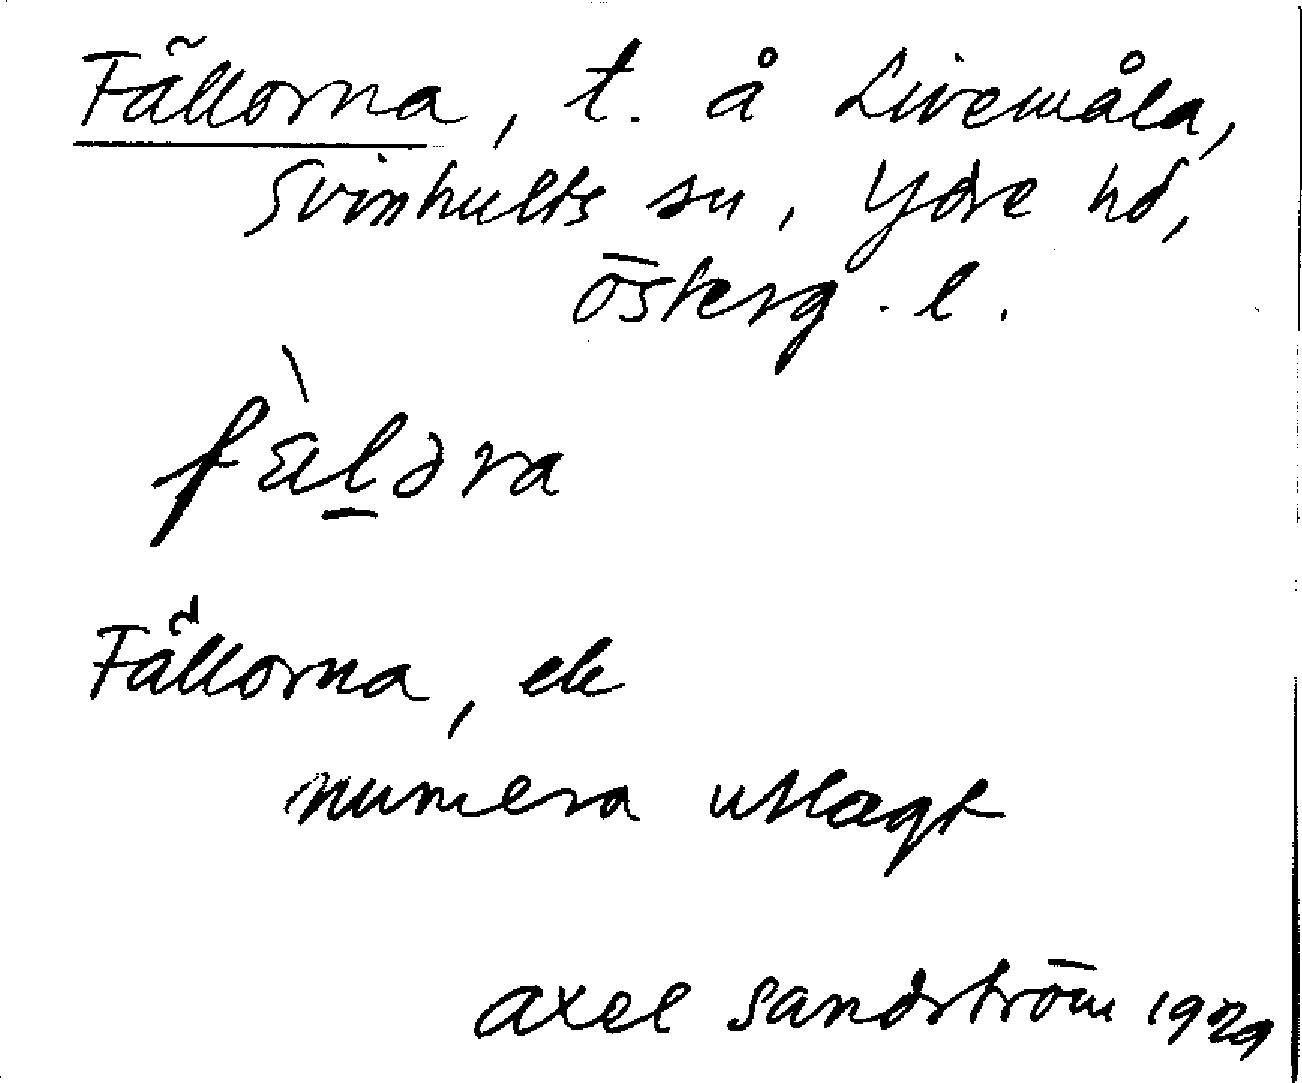 Fällorna, t. å Livemåla,
Svinhults sn, Ydre hd,
Österg. l.
fæ̀l̠əra
Fällorna, ele
numera utlagt
Axel Sandström 1929